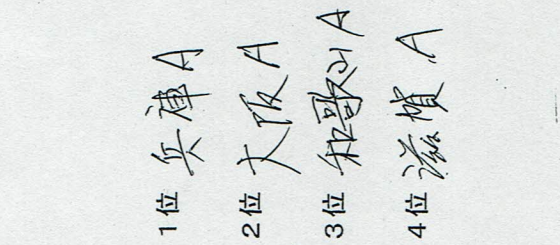 1位 兵庫A
2位 大阪A
3位 和歌山A
4位 滋賀A